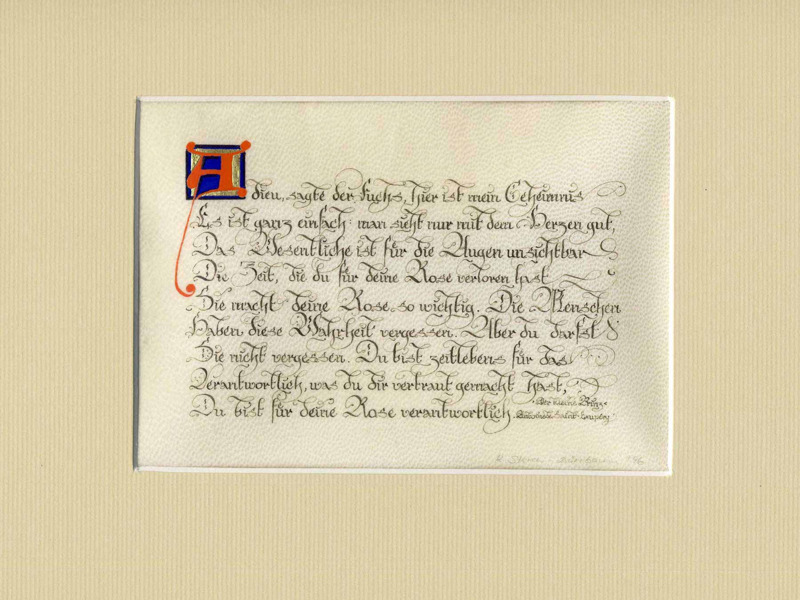 Adieu, sagte der Fuchs, hier ist mein Geheimnis
Es ist ganz einfach: man sieht nur mit dem Herzen gut,
Das Wesentliche ist für die Augen unsichtbar
Die Zeit, die du für deine Rose verloren hast
Sie macht deine Rose so wichtig. Die Menschen
Haben diese Wahrheit vergessen. Aber du darfst
Sie nicht vergessen. Du bist zeitlebens für das
Verantwortlich, was du dir vertraut gemacht hast,
Du bist für deine Rose verantwortlich.
"Der kleine Prinz"
Antoine de Saint-Exupéry